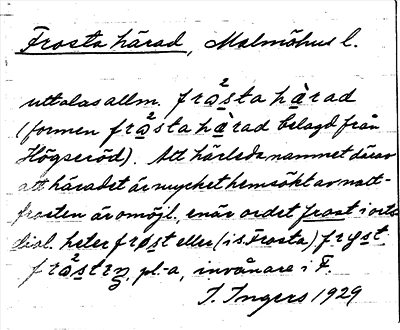 Frosta härad, Malmöhus l.
uttalas allm. frå²sta hàrad
(formen frå²sta hà̈rad belagd från
Högseröd). Att härleda namnet därav
att häradet är mycket hemsökt av natt-
frosten är omöjl., enär ordet frost i orts
dial. heter frøst eller (i s. Frosta) fryst.
frå²stiŋ, pl. -a, invånare i F.
I. Ingers 1929